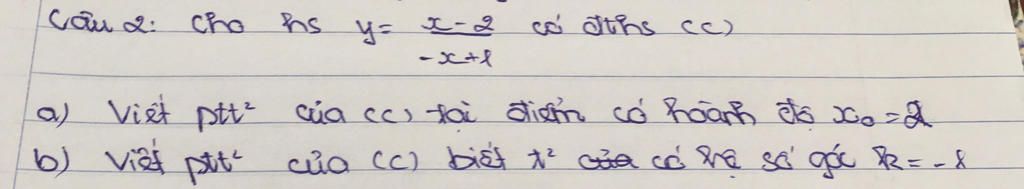 Câu 2: Cho hs y = x-2 / -x+1 có đths (C)
a) Viết ptt² của (C) tại điểm có hoành độ x₀ = 2
b) Viết ptt² của (C) biết t² của có hệ số góc k = -1